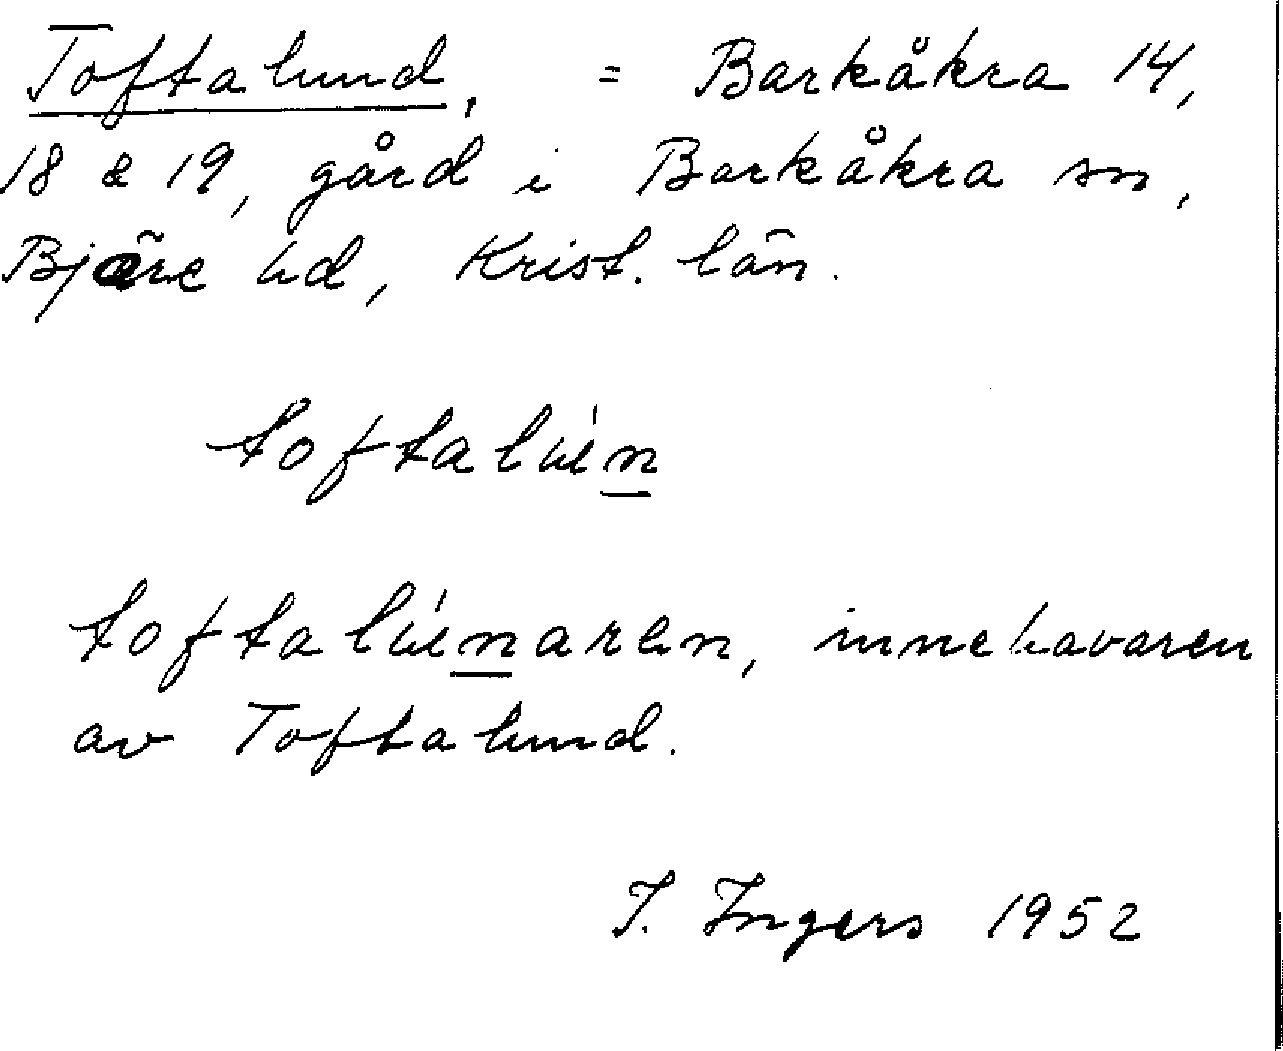 Toftalund, = Barkåkra 14,
18 & 19, gård i Barkåkra sn,
Bjäre hd, Krist. län.
toftalún
toftalúnaren, innehavaren
av Toftalund.
I. Ingers 1952